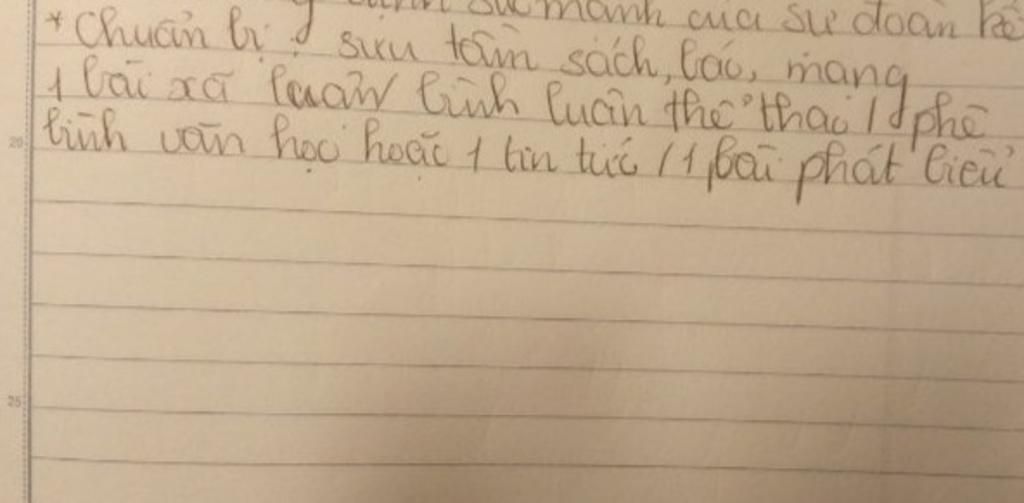 sức mạnh của sự đoàn kế
* Chuẩn bị: sưu tầm sách, báo, mạng
1 bài xã luận bình luận thể thao / phê
bình văn học hoặc 1 tin tức / 1 bài phát biểu
20
25